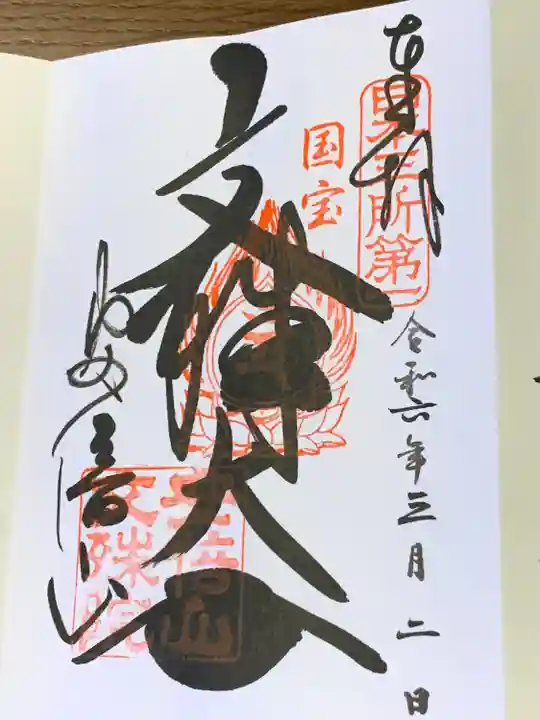 奉拝
日本三所第一
国宝
令和六年三月二日
文殊大士
安倍山
文殊院